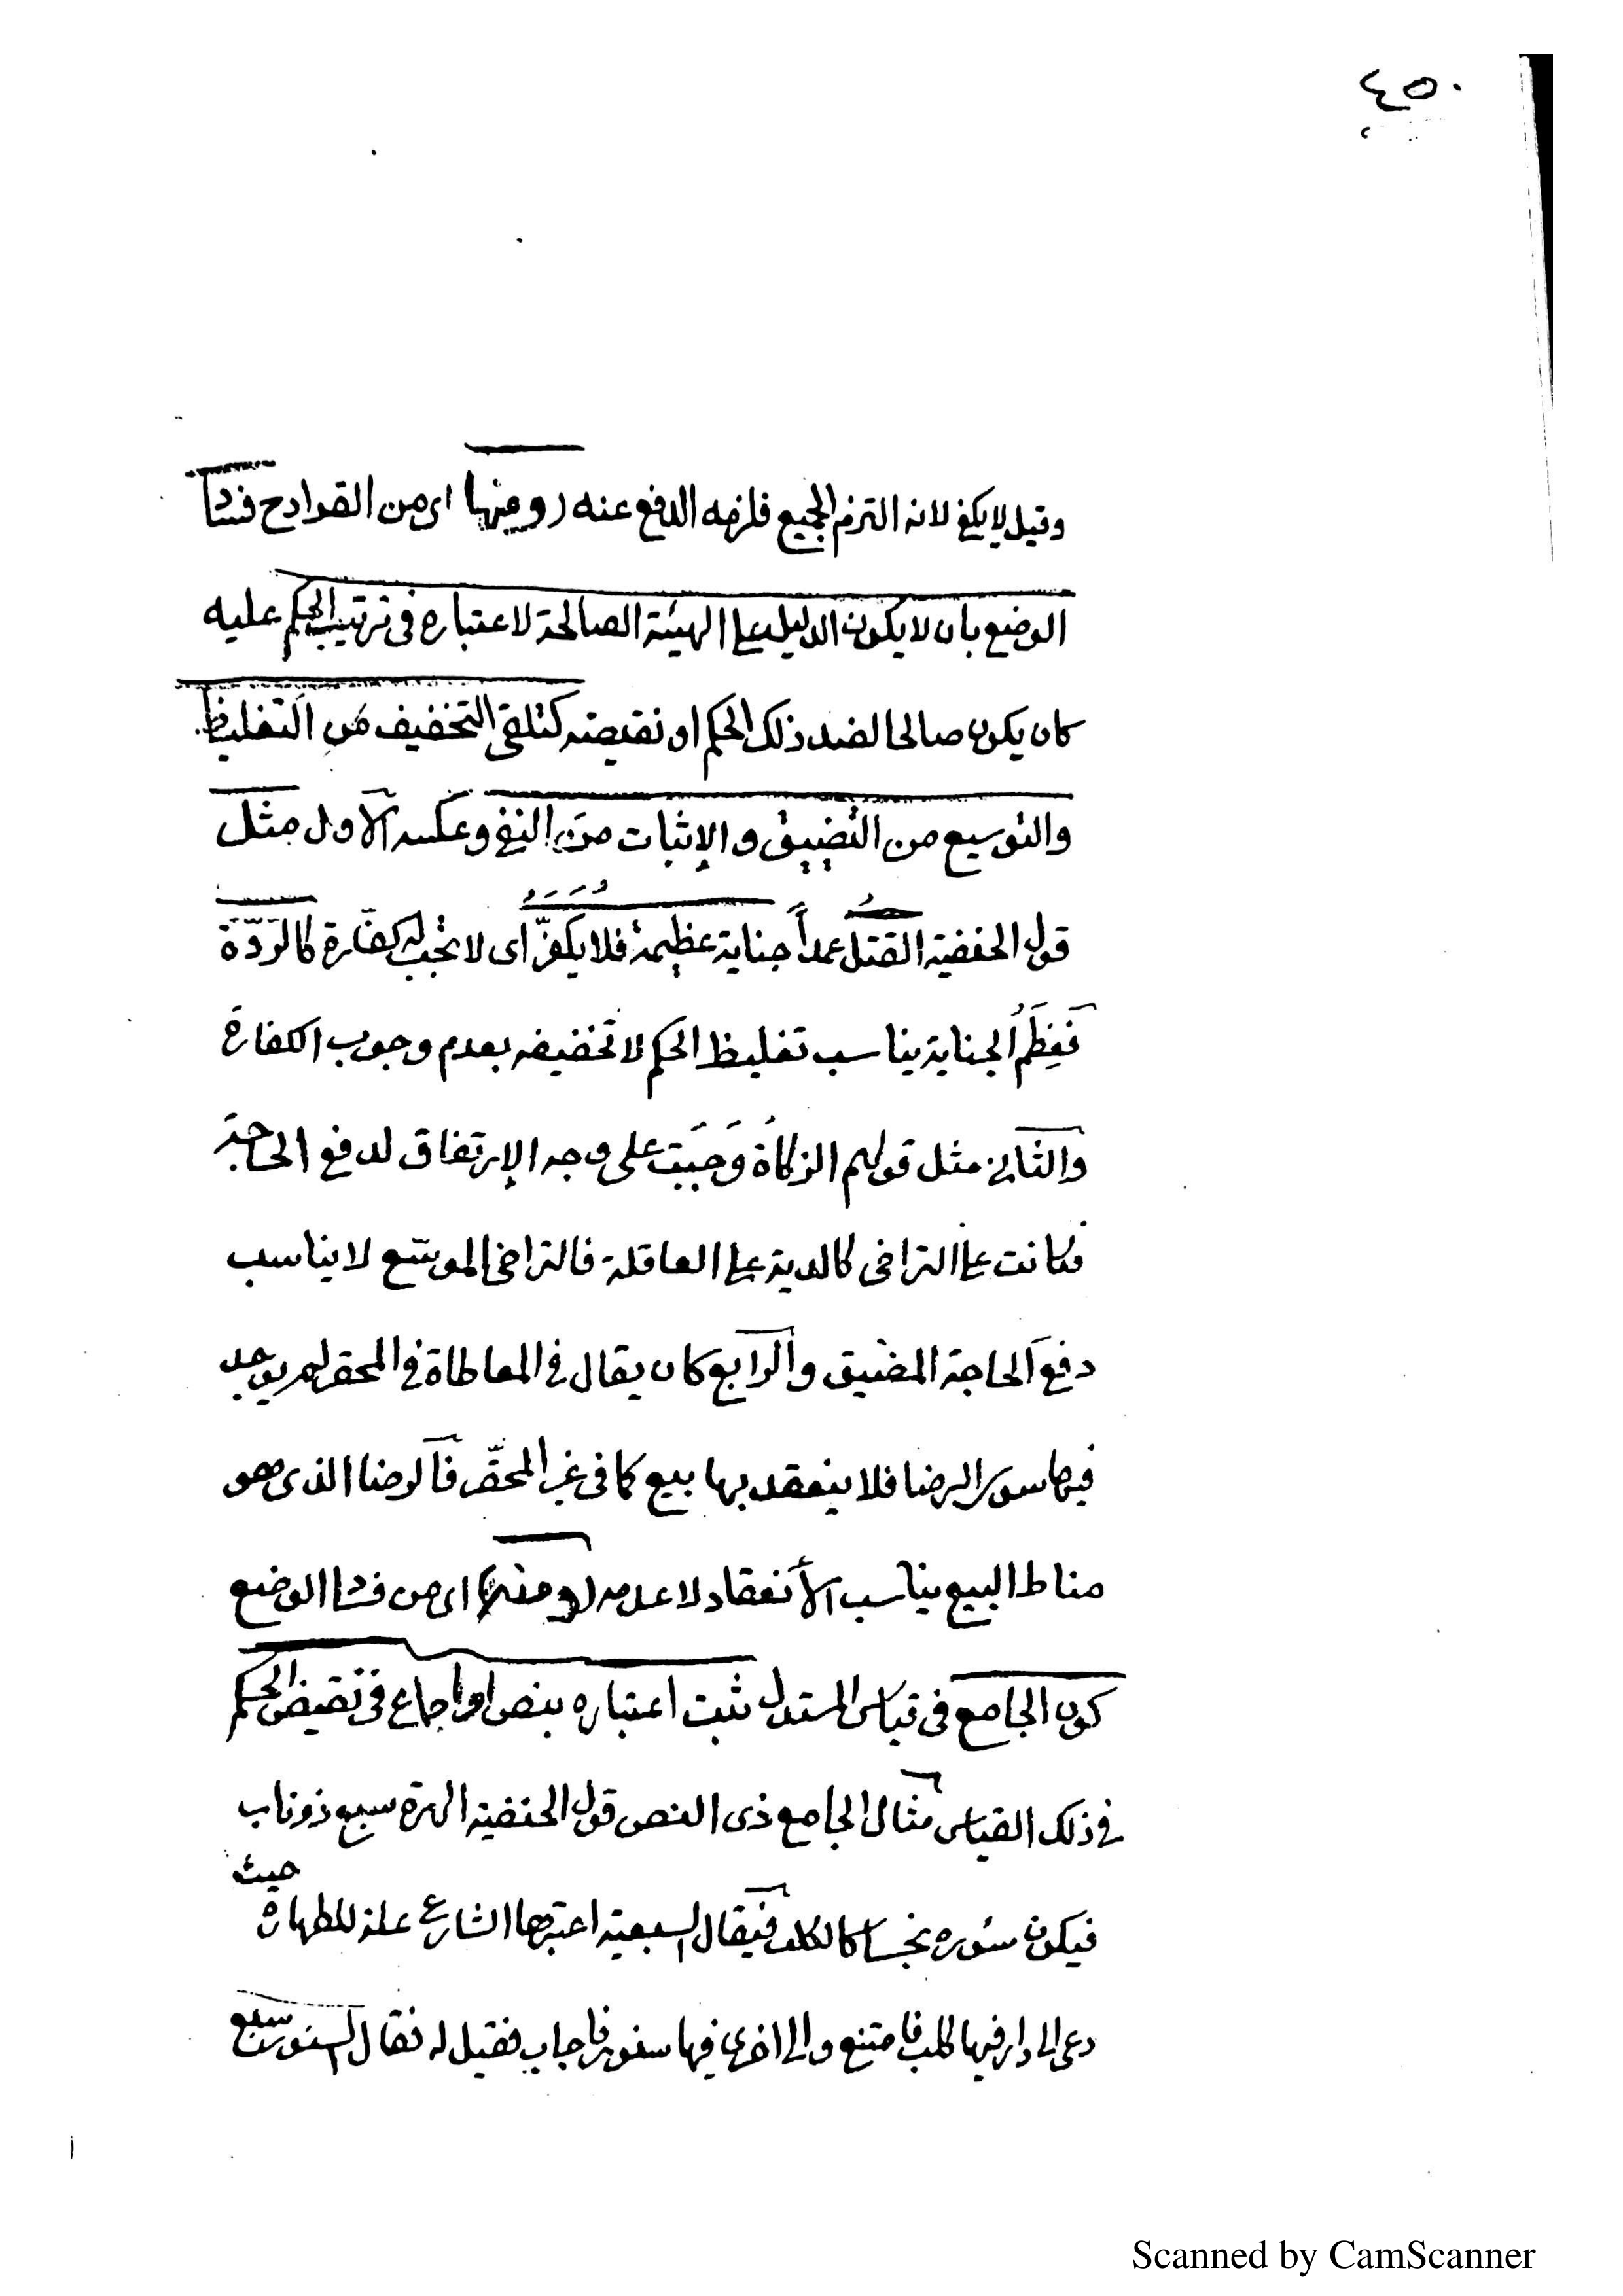 ٤٥٠
وقيل لا يكفي لانه التزم الجميع فلزمه الدفع عنه (ومنها اى من القوادح فساد
الوضع بان لا يكون الدليل على الهيئة الصالحة لاعتباره فى ترتيب الحكم عليه
كان يكون صالحا لضد ذلك الحكم او نقيضه كتلقى التخفيف من التغليظ
والتوسيع من التضييق والإثبات من النفي وعكسه الأول مثل
قول الحنفية القتل عمداً جناية عظيمة فلا يكفّر اى لا تجب له كفّارة كالرّدّة
فَعِظَمُ الجناية يناسب تغليظ الحكم لا تخفيفه بعدم وجوب الكفارة
والثانى مثل قولهم الزكاة وَجَبَت على وجه الإرتفاق لدفع الحاجة
فكانت على التراخى كالدية على العاقلة فالتراخى الموسّع لا يناسب
دفع الحاجة المضيق والرابع كان يقال فى المعاطاة فى المحقر لم يوجد
فيها سوى الرضا فلا ينعقد بها بيع كما فى غير المحقّر فالرضا الذى هو
مناط البيع يناسب الأنعقاد لا عدمه (ومنه) اى من فساد الوضع
كون الجامع فى قياس المستدل ثبت اعتباره بنص او اجماع فى نقيض الحكم
فى ذلك القياس مثال الجامع ذى النص قول الحنفية الهرة سبع ذو ناب
فيكون سؤره نجسا كالكلب فيقال السبعية اعتبرها الشارع علة للطهارة حيث
دعى الى دار فيها كلب فامتنع والى اخرى فيها سنور فاجاب فقيل له فقال السنور سبع
Scanned by CamScanner